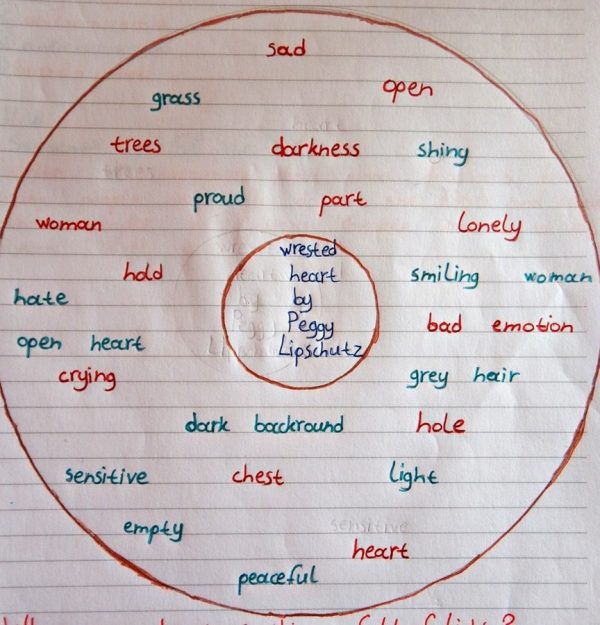 sad
open
grass
trees darkness shiny
proud part
woman lonely
wrested
heart
by
Peggy
Lipschutz
hold smiling woman
hate
bad emotion
open heart
crying grey hair
dark backround hole
sensitive chest light
empty
sensitive
heart
peaceful